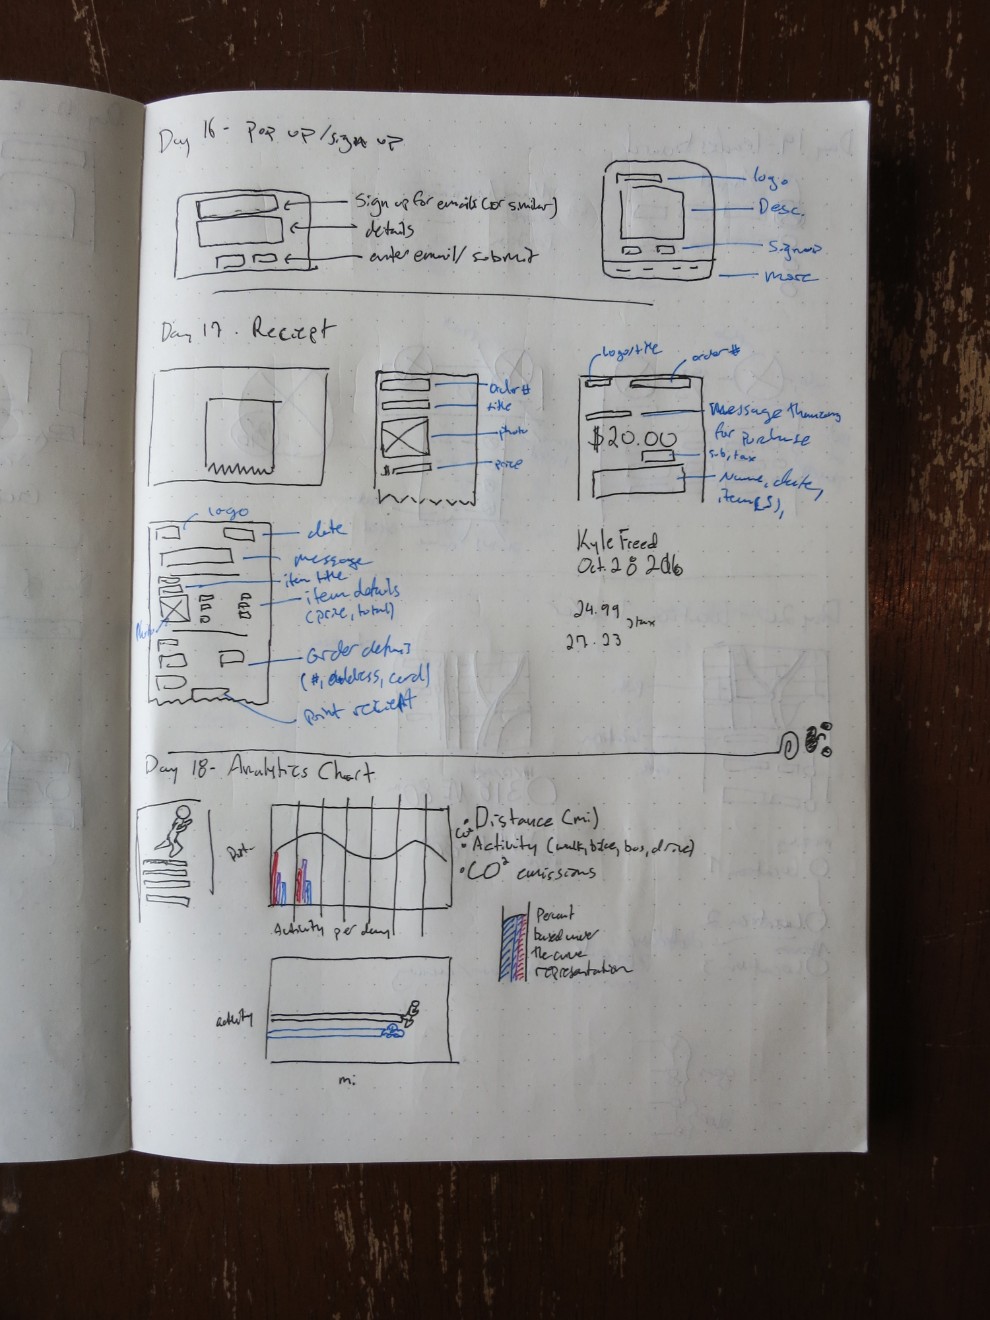 Day 16 - Pop up/sign up
Sign up for emails (or similar)
details
enter email/submit
logo
Desc.
Signup
more
Day 17 - Reciept
order #
title
photo
$
price
logo/title
order #
Message thanking
for purchase
$20.00
sub, tax
Name, date,
item(s),
logo
date
message
item title
item details
(price, total)
Photo
Order details
(#, address, card)
print reciept
Kyle Freed
Oct. 28 2016
24.99
, tax
27.33
Day 18 - Analytics Chart
Activity per day
CO²
• Distance (mi)
• Activity (walk, bike, bus, drive)
• CO² emissions
Percent
based under
the curve
representation
activity
mi